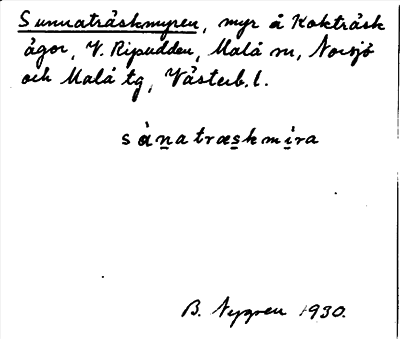 Sunnaträskmyren, myr å Kokträsk
ägor, V. Ripudden, Malå sn, Norsjö
och Malå tg, Västerb. l.
sànatræskmira
B. Nygren 1930.